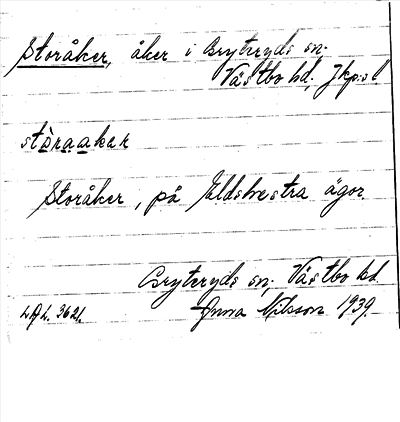 Storåker, åker i Bryteryds sn.
Västbo hd, Jkp:s l.
stòraakar
Storåker, på Eldshestra ägor.
Bryteryds sn, Västbo hd.
LAL. 3621. Anna Nilsson 1939.